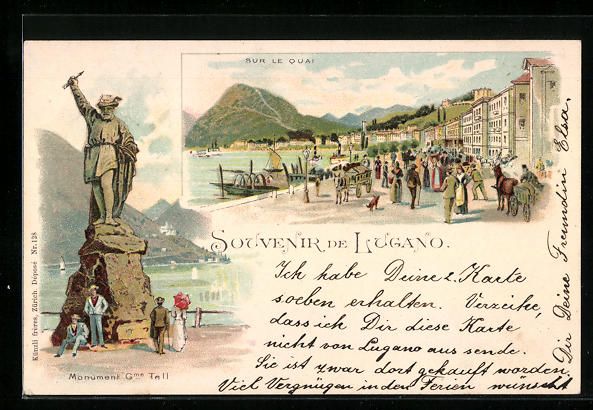 SUR LE QUAI
SOUVENIR DE LUGANO.
Ich habe Deine 2. Karte
soeben erhalten. Verzeihe,
dass ich Dir diese Karte
nicht von Lugano aus sende.
Sie ist zwar dort gekauft worden.
Viel Vergnügen in den Ferien wünscht
Dir Deine Freundin Elsa.
Monument Gme Tell
Künzli frères, Zürich Déposé Nr. 128